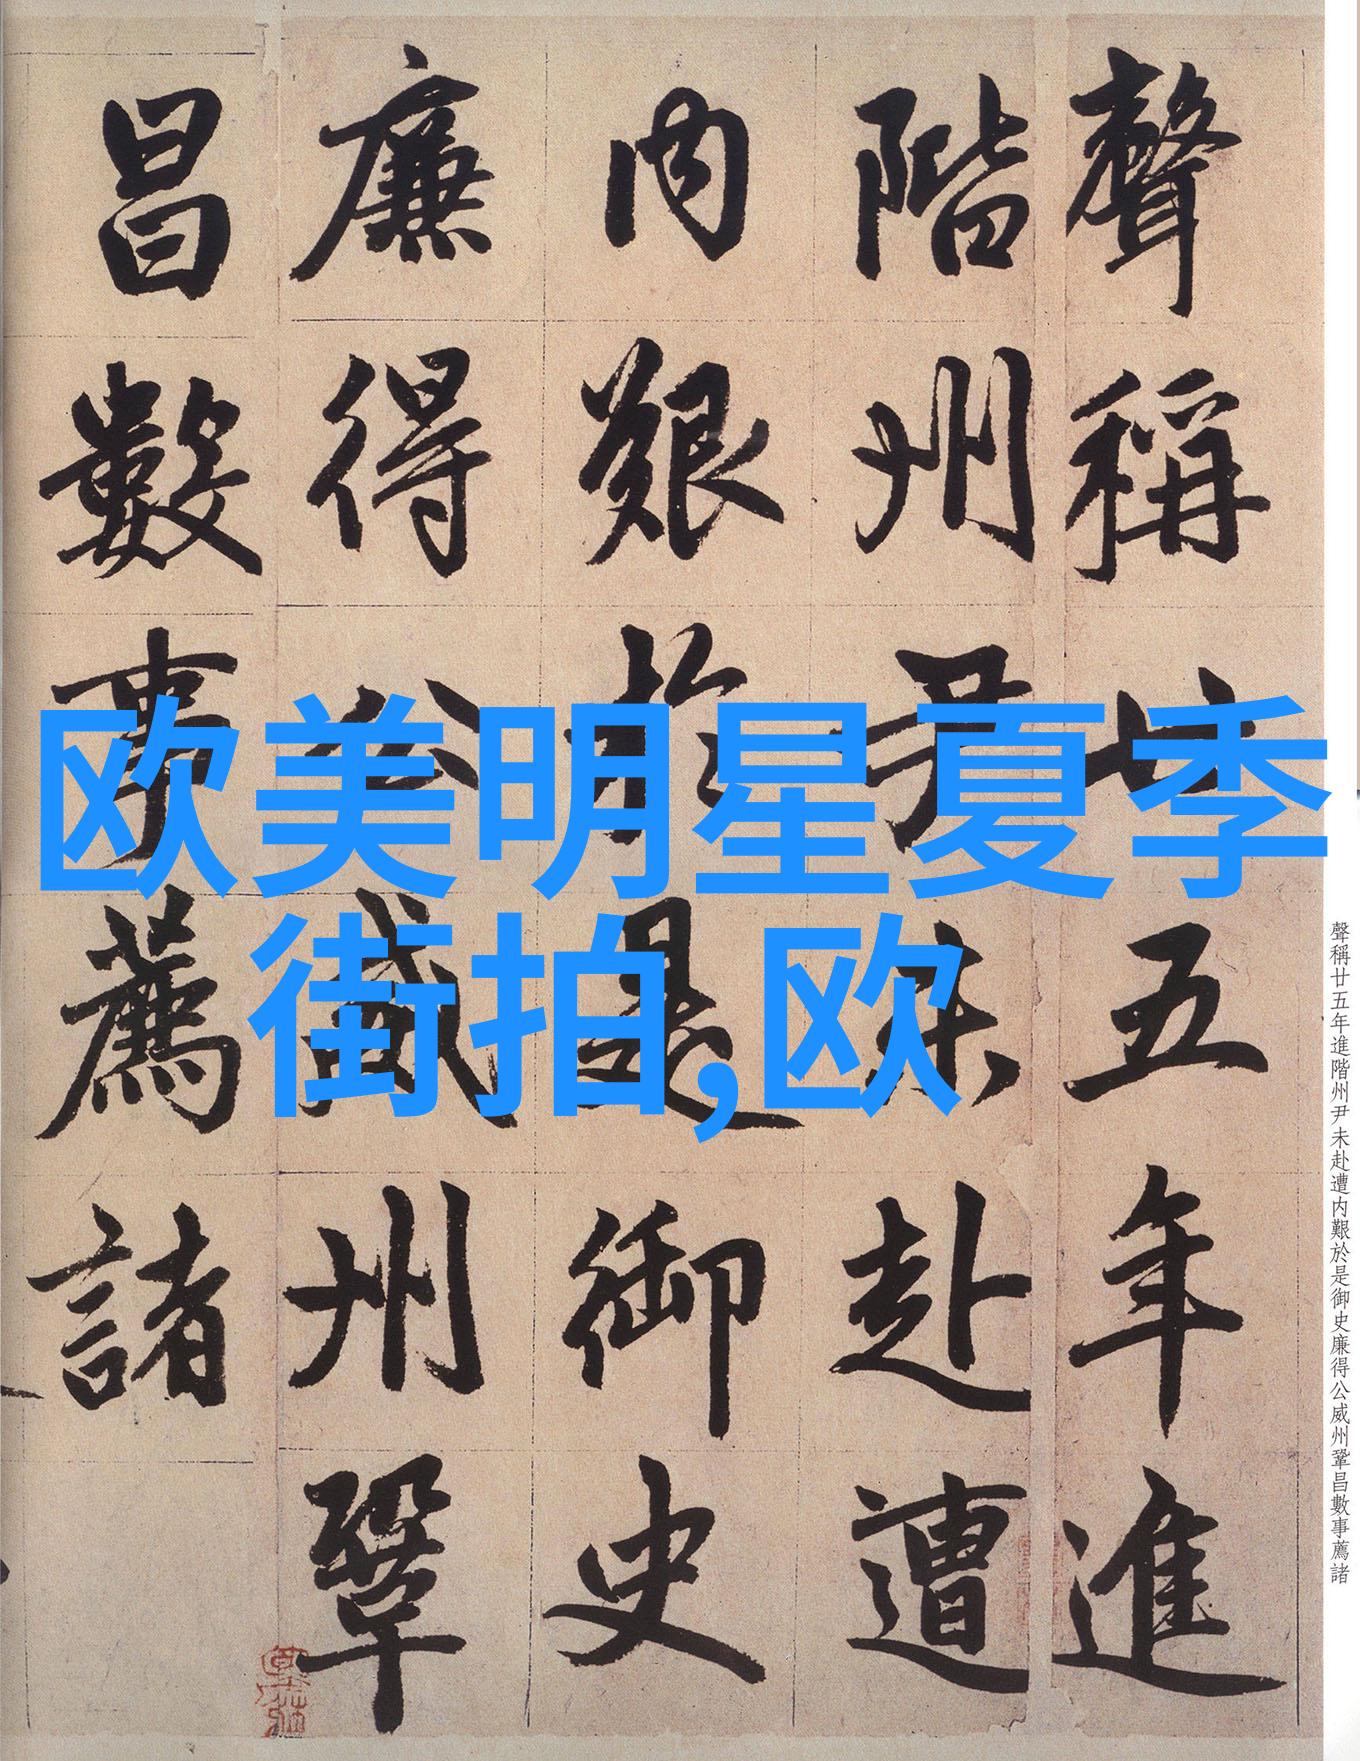 聲稱廿五年進
階州尹未赴遭
内艱於是御史
廉得公威州鞏
昌數事薦諸
欧美明星夏季
街拍,欧
聲稱廿五年進階州尹未赴遭内艱於是御史廉得公威州鞏昌數事薦諸